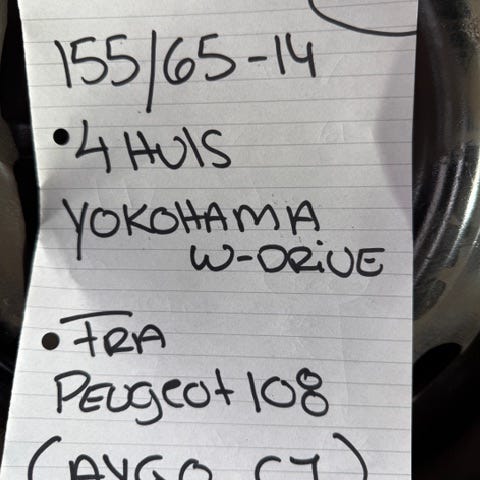 155/65-14
• 4 HULS
YOKOHAMA
W-DRIVE
• FRA
PEUGEOT 108
(AYGO, C1)